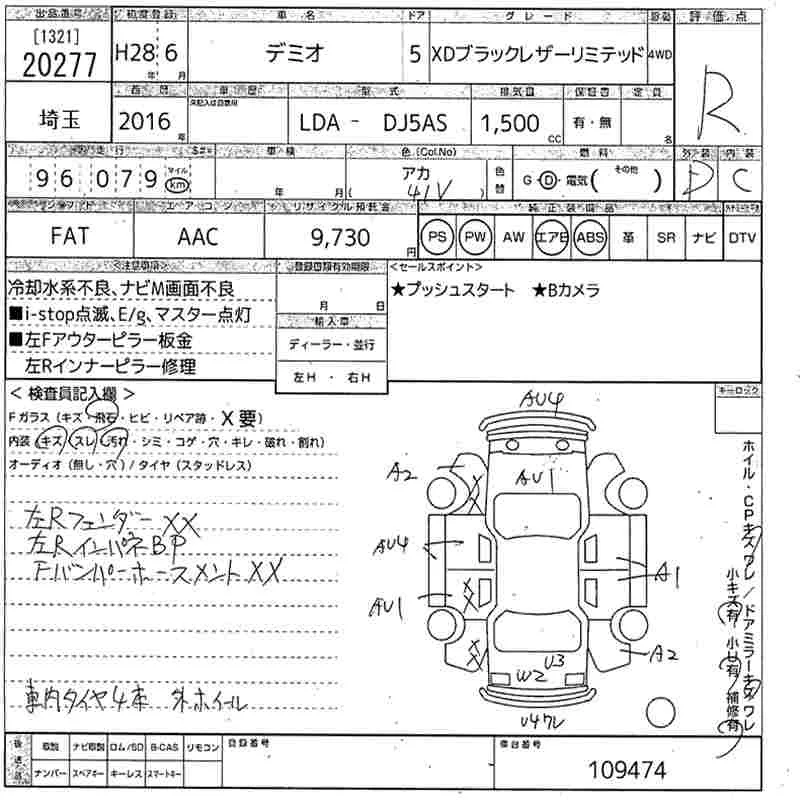 出品番号 初度登録 車名 ドア グレード 評価点
[1321]
20277 H28年 6月 デミオ 5 XDブラックレザーリミテッド 4WD R
車歴 型式 排気量 保証書 定員
埼玉 2016年 LDA - DJ5AS 1,500cc 有・無 名
走行 車検 色(Col.No) 燃料 外装 内装
96,079 マイル km 年 月 アカ (41V) 色替 G・D・電気( その他 ) D C
シフト エアコン リサイクル預託金 純正装備品
FAT AAC 9,730円 PS PW AW エアB ABS 革 SR ナビ DTV
<注意事項> 登録書類有効期限 <セールスポイント>
冷却水系不良、ナビM画面不良 月 日 ★プッシュスタート ★Bカメラ
■i-stop点滅、E/g、マスター点灯 輸入車
■左Fアウターピラー板金 ディーラー・並行
左Rインナーピラー修理 左H ・ 右H
<検査員記入欄> キーロック
Fガラス(キズ・飛石・ヒビ・リペア跡・X要)
内装(キズ・スレ・汚れ・シミ・コゲ・穴・キレ・破れ・割れ)
オーディオ(無し・穴)/タイヤ(スタッドレス)
左Rフェンダー XX
左Rインパネ BP
Fバンパーホースメント XX
車内タイヤ4本 外ホイール
AU4
A2
AU1
XX
AU4
AU1
XX
A1
XX
A2
U3
W2
U4ワレ
ホイル・CPキズワレ/ドアミラーキズワレ
小キズ有 小U有 補修有
後送品 取説 ナビ取説 ロム/SD B-CAS リモコン 登録番号 車台番号
ナンバー スペアキー キーレス スマートキー 109474